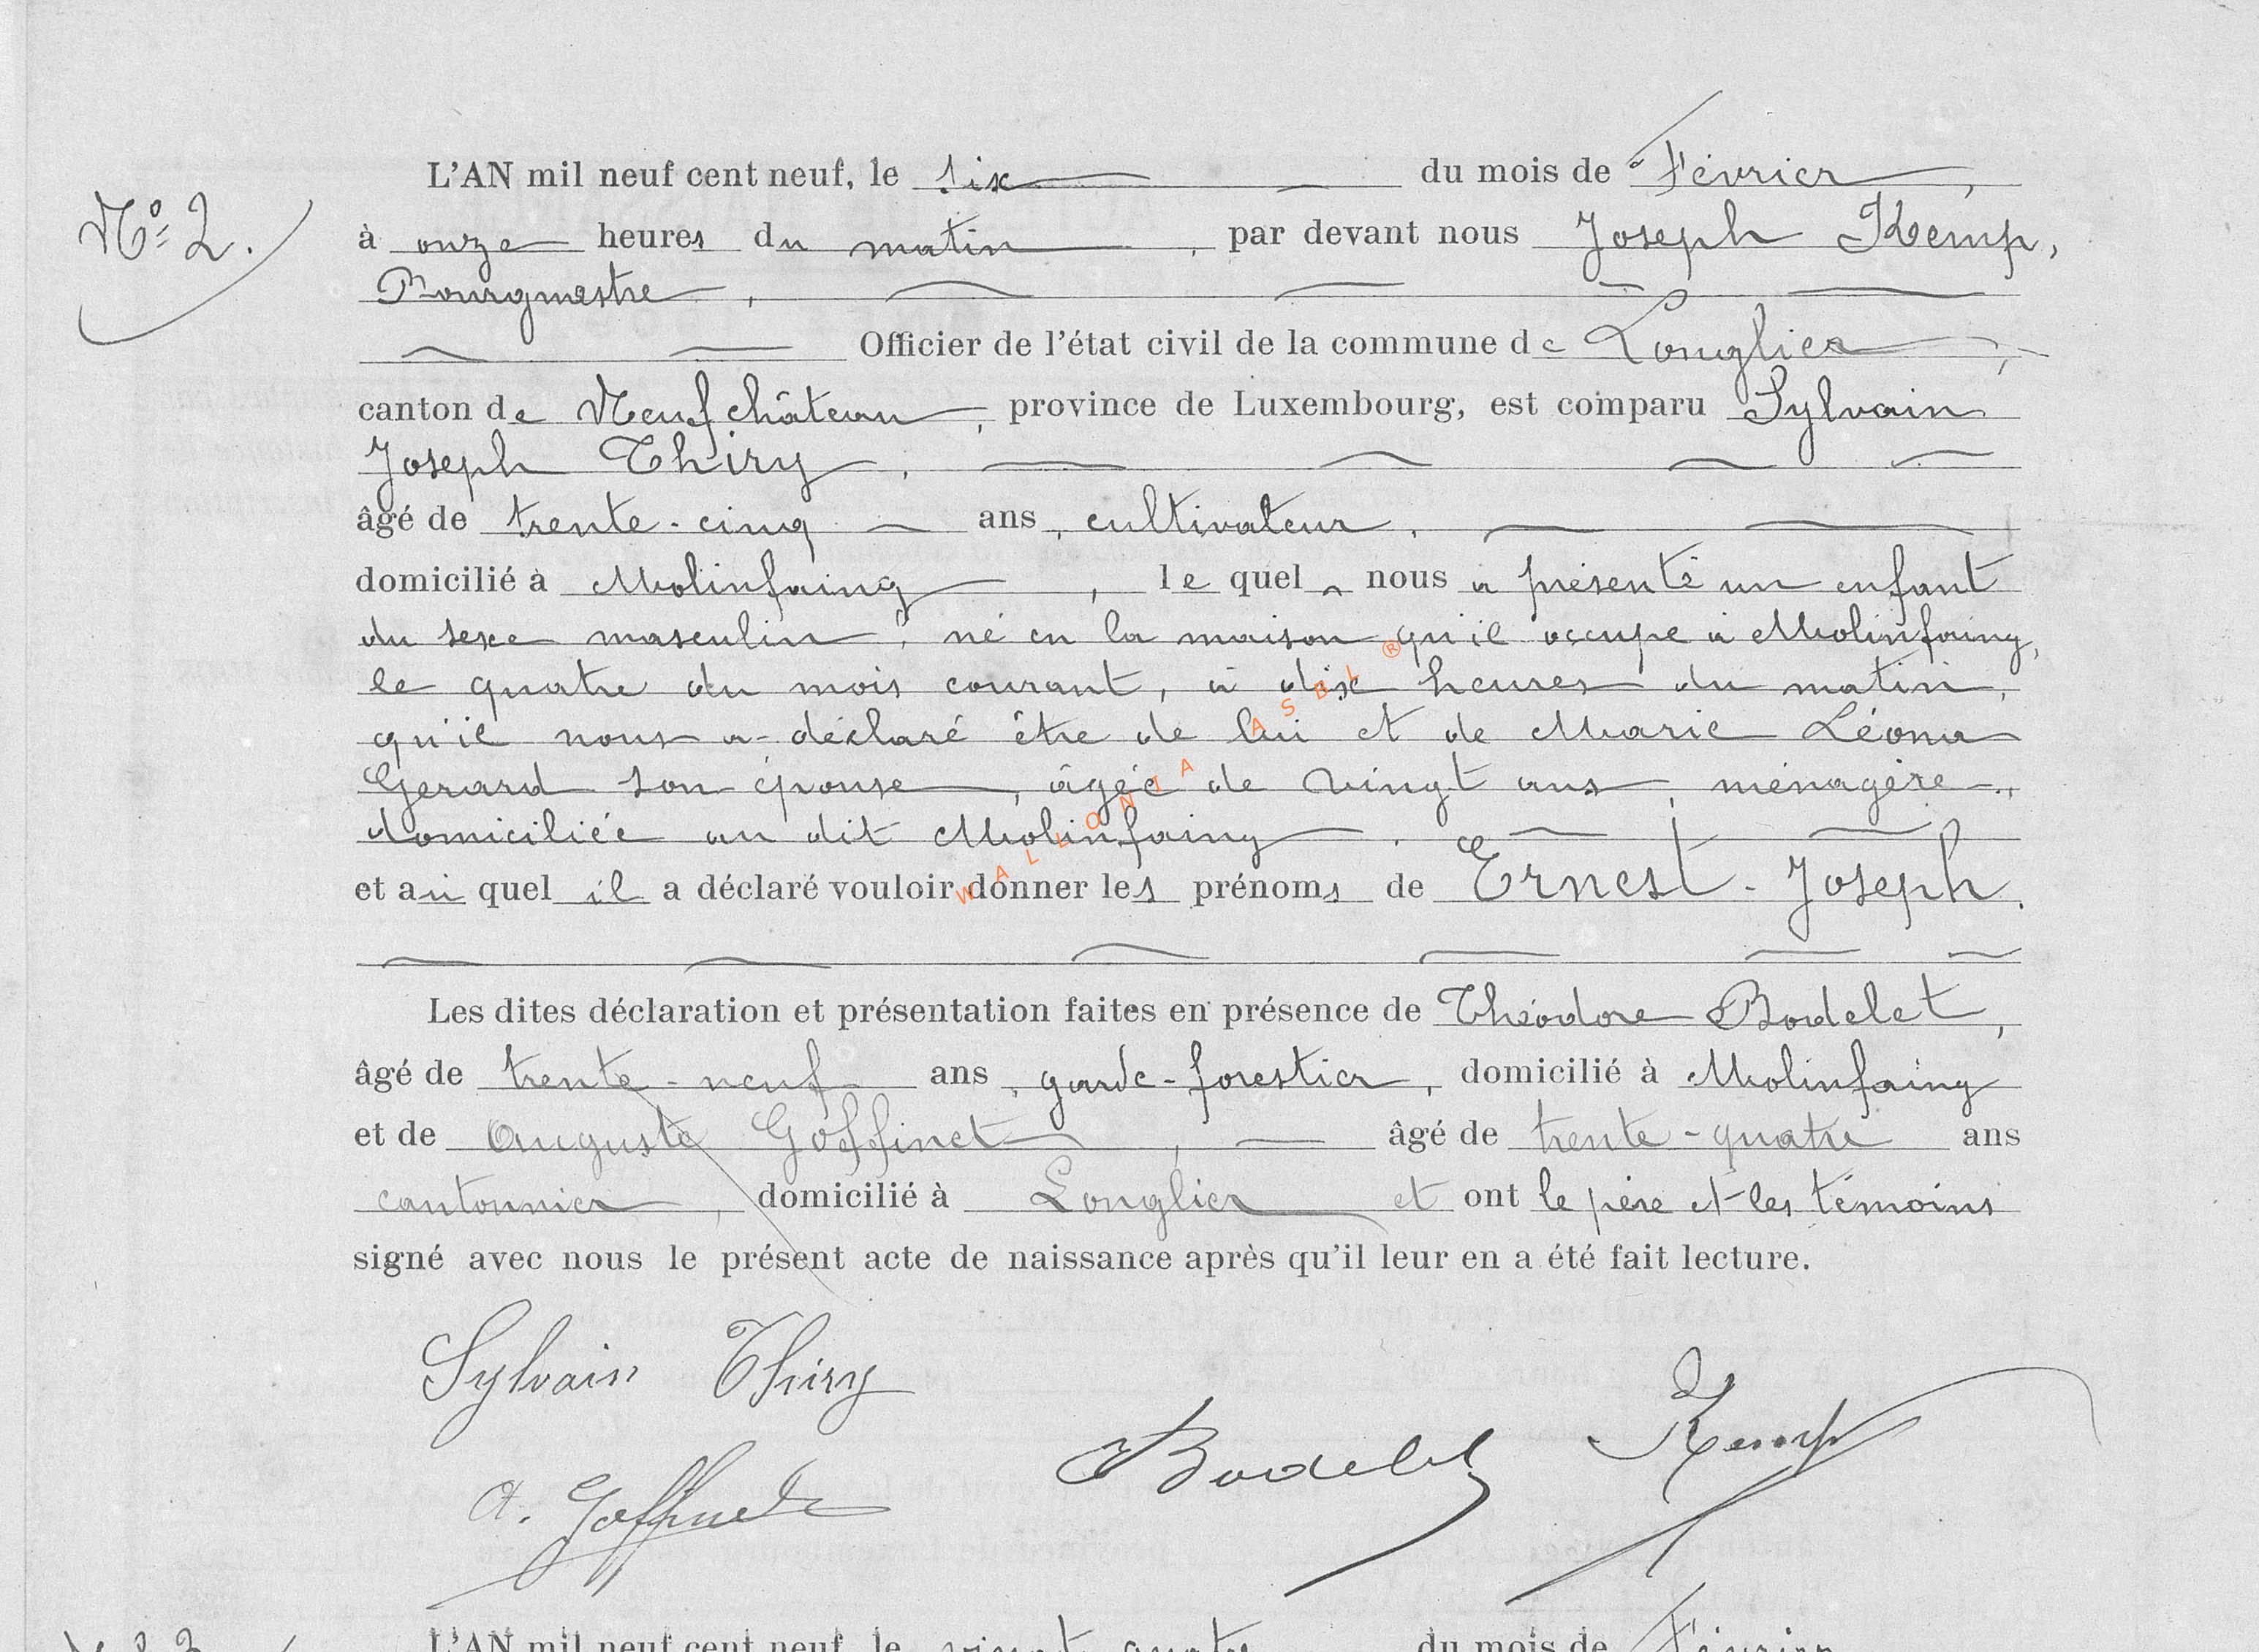 L'AN mil neuf cent neuf, le six du mois de Février,
N° 2.
à onze heures du matin, par devant nous Joseph Kemp,
Bourgmestre,
Officier de l'état civil de la commune de Longlier,
canton de Neufchâteau, province de Luxembourg, est comparu Sylvain
Joseph Thiry,
âgé de trente-cinq ans, cultivateur,
domicilié à Molinfaing, le quel nous a présenté un enfant
du sexe masculin, né en la maison qu'il occupe à Molinfaing,
le quatre du mois courant, à dix heures du matin,
qu'il nous a déclaré être de lui et de Marie Léona
Gerard son épouse, âgée de vingt ans, ménagère,
domiciliée au dit Molinfaing.
et au quel il a déclaré vouloir donner les prénoms de Ernest-Joseph.
WALLONIA ASBL ®
Les dites déclaration et présentation faites en présence de Théodore Bodelet,
âgé de trente-neuf ans, garde-forestier, domicilié à Molinfaing
et de Auguste Goffinet, âgé de trente-quatre ans
cantonnier, domicilié à Longlier et ont le père et les témoins
signé avec nous le présent acte de naissance après qu'il leur en a été fait lecture.
Sylvain Thiry
Bodelet Kemp
A. Goffinet
L'AN mil neuf cent neuf, le vingt quatre du mois de Février